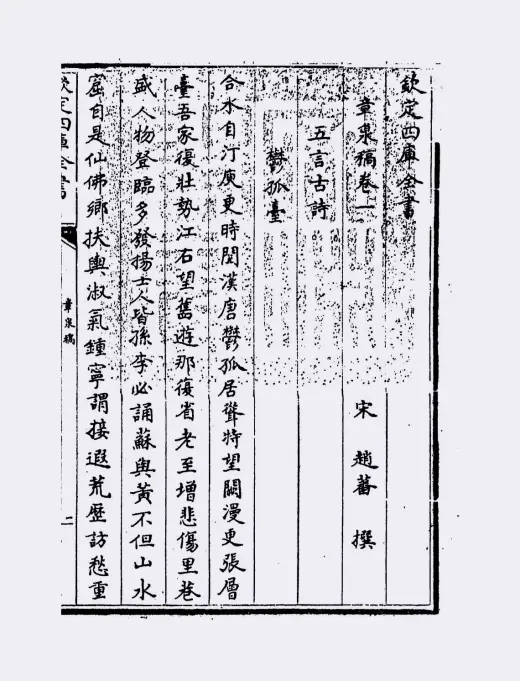 欽定四庫全書
章泉稿卷一
宋 趙蕃 撰
五言古詩
鬱孤臺
合水自汀庾更時閲漢唐鬱孤居聳特望闕漫更張層
臺吾家復壯勢江右望舊遊那復省老至增悲傷里巷
盛人物登臨多發揚士人皆孫李必誦蘇與黃不但山水
窟自是仙佛鄉扶輿淑氣鍾寧謂接遐荒歴訪愁重
欽定四庫全書
章泉稿
二